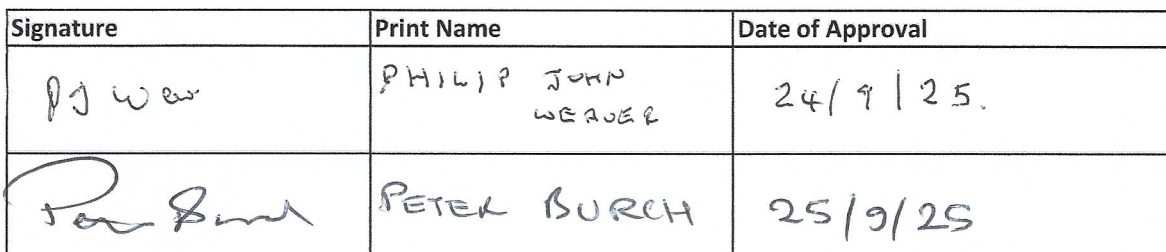 Signature Print Name Date of Approval
PJ Weaver PHILIP JOHN 24/9/25.
WEAVER
Peter Burch PETER BURCH 25/9/25